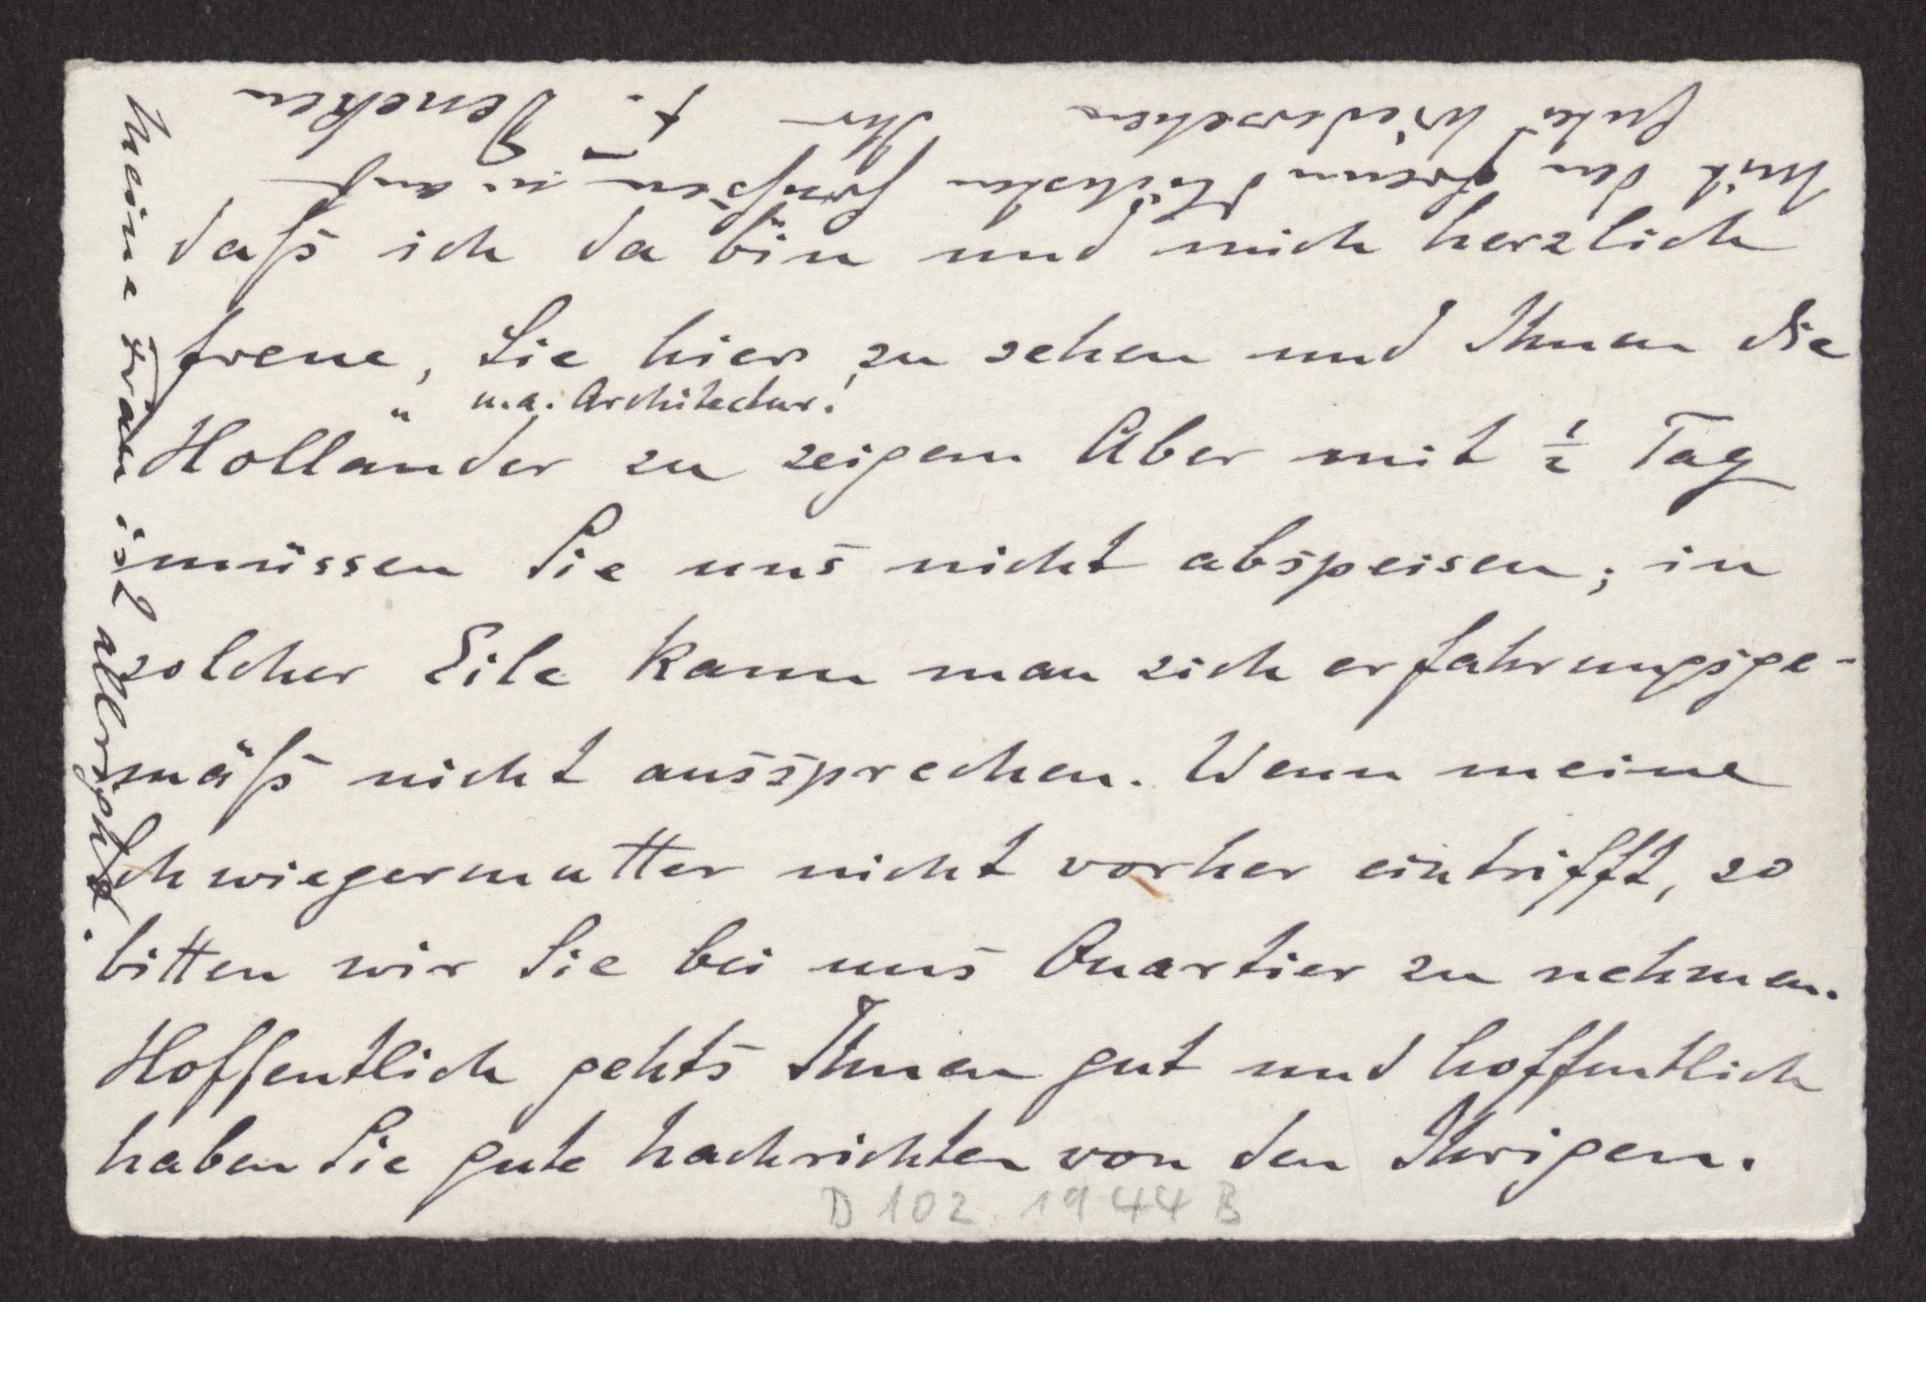 daß ich da bin und mich herzlich
freue, Sie hier zu sehen und Ihnen die
u.a. Architectur!
Holländer zu zeigen Aber mit ½ Tag
müssen Sie uns nicht abspeisen; in
solcher Eile kann man sich erfahrungsge-
mäß nicht aussprechen. Wenn meine
Schwiegermutter nicht vorher eintrifft, so
bitten wir Sie bei uns Quartier zu nehmen.
Hoffentlich gehts Ihnen gut und hoffentlich
haben Sie gute Nachrichten von den Ihrigen.
Mit den freundlichsten Grüßen u. auf
gutes Wiedersehen Ihr F. Deneken
Meine Frau ist allright.
D 102 1944 B